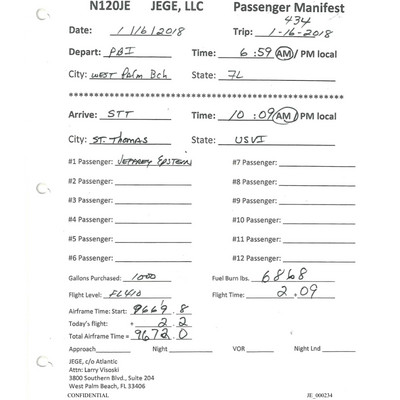 N120JE JEGE, LLC Passenger Manifest
434
Date: 1/16/2018 Trip: 1-16-2018
Depart: PBI Time: 6:59 AM / PM local
City: West Palm Bch State: FL
Arrive: STT Time: 10:09 AM / PM local
City: St. Thomas State: USVI
#1 Passenger: Jeffrey Epstein #7 Passenger:
#2 Passenger: #8 Passenger:
#3 Passenger: #9 Passenger:
#4 Passenger: #10 Passenger:
#5 Passenger: #11 Passenger:
#6 Passenger: #12 Passenger:
Gallons Purchased: 1000 Fuel Burn lbs. 6868
Flight Level: FL410 Flight Time: 2.09
Airframe Time: Start: 9669.8
Today's flight: + 2.2
Total Airframe Time = 9672.0
Approach Night VOR Night Lnd
JEGE, c/o Atlantic
Attn: Larry Visoski
3800 Southern Blvd., Suite 204
West Palm Beach, FL 33406
CONFIDENTIAL JE_000234